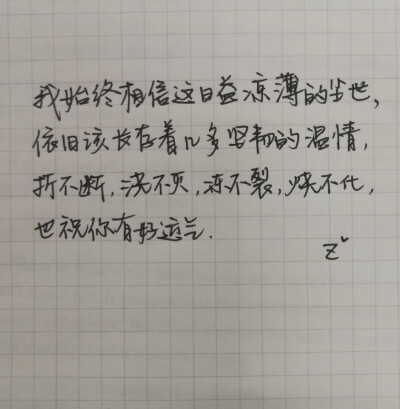 我始终相信这日益凉薄的尘世,
依旧该长存着几多坚韧的温情,
折不断,浇不灭,冻不裂,烧不化,
也祝你有好运气.
Z